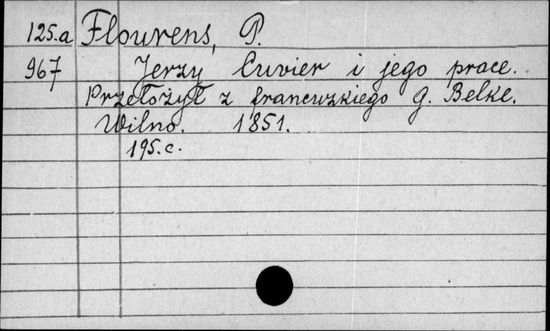 125.a Flourens, P.
967 Jerzy Cuvier i jego prace.
Przełożył z francuzkiego G. Belke.
Wilno. 1851.
195.c.